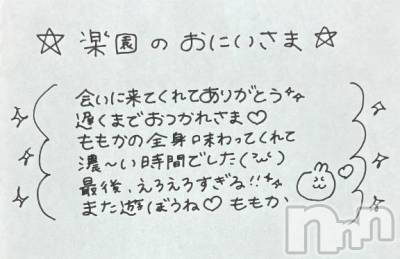 ☆楽園のおにいさま☆
会いに来てくれてありがとう
遅くまでおつかれさま♡
ももかの全身味わってくれて
濃〜い時間でした
最後、えろえろすぎる!!
また遊ぼうね♡ ももか